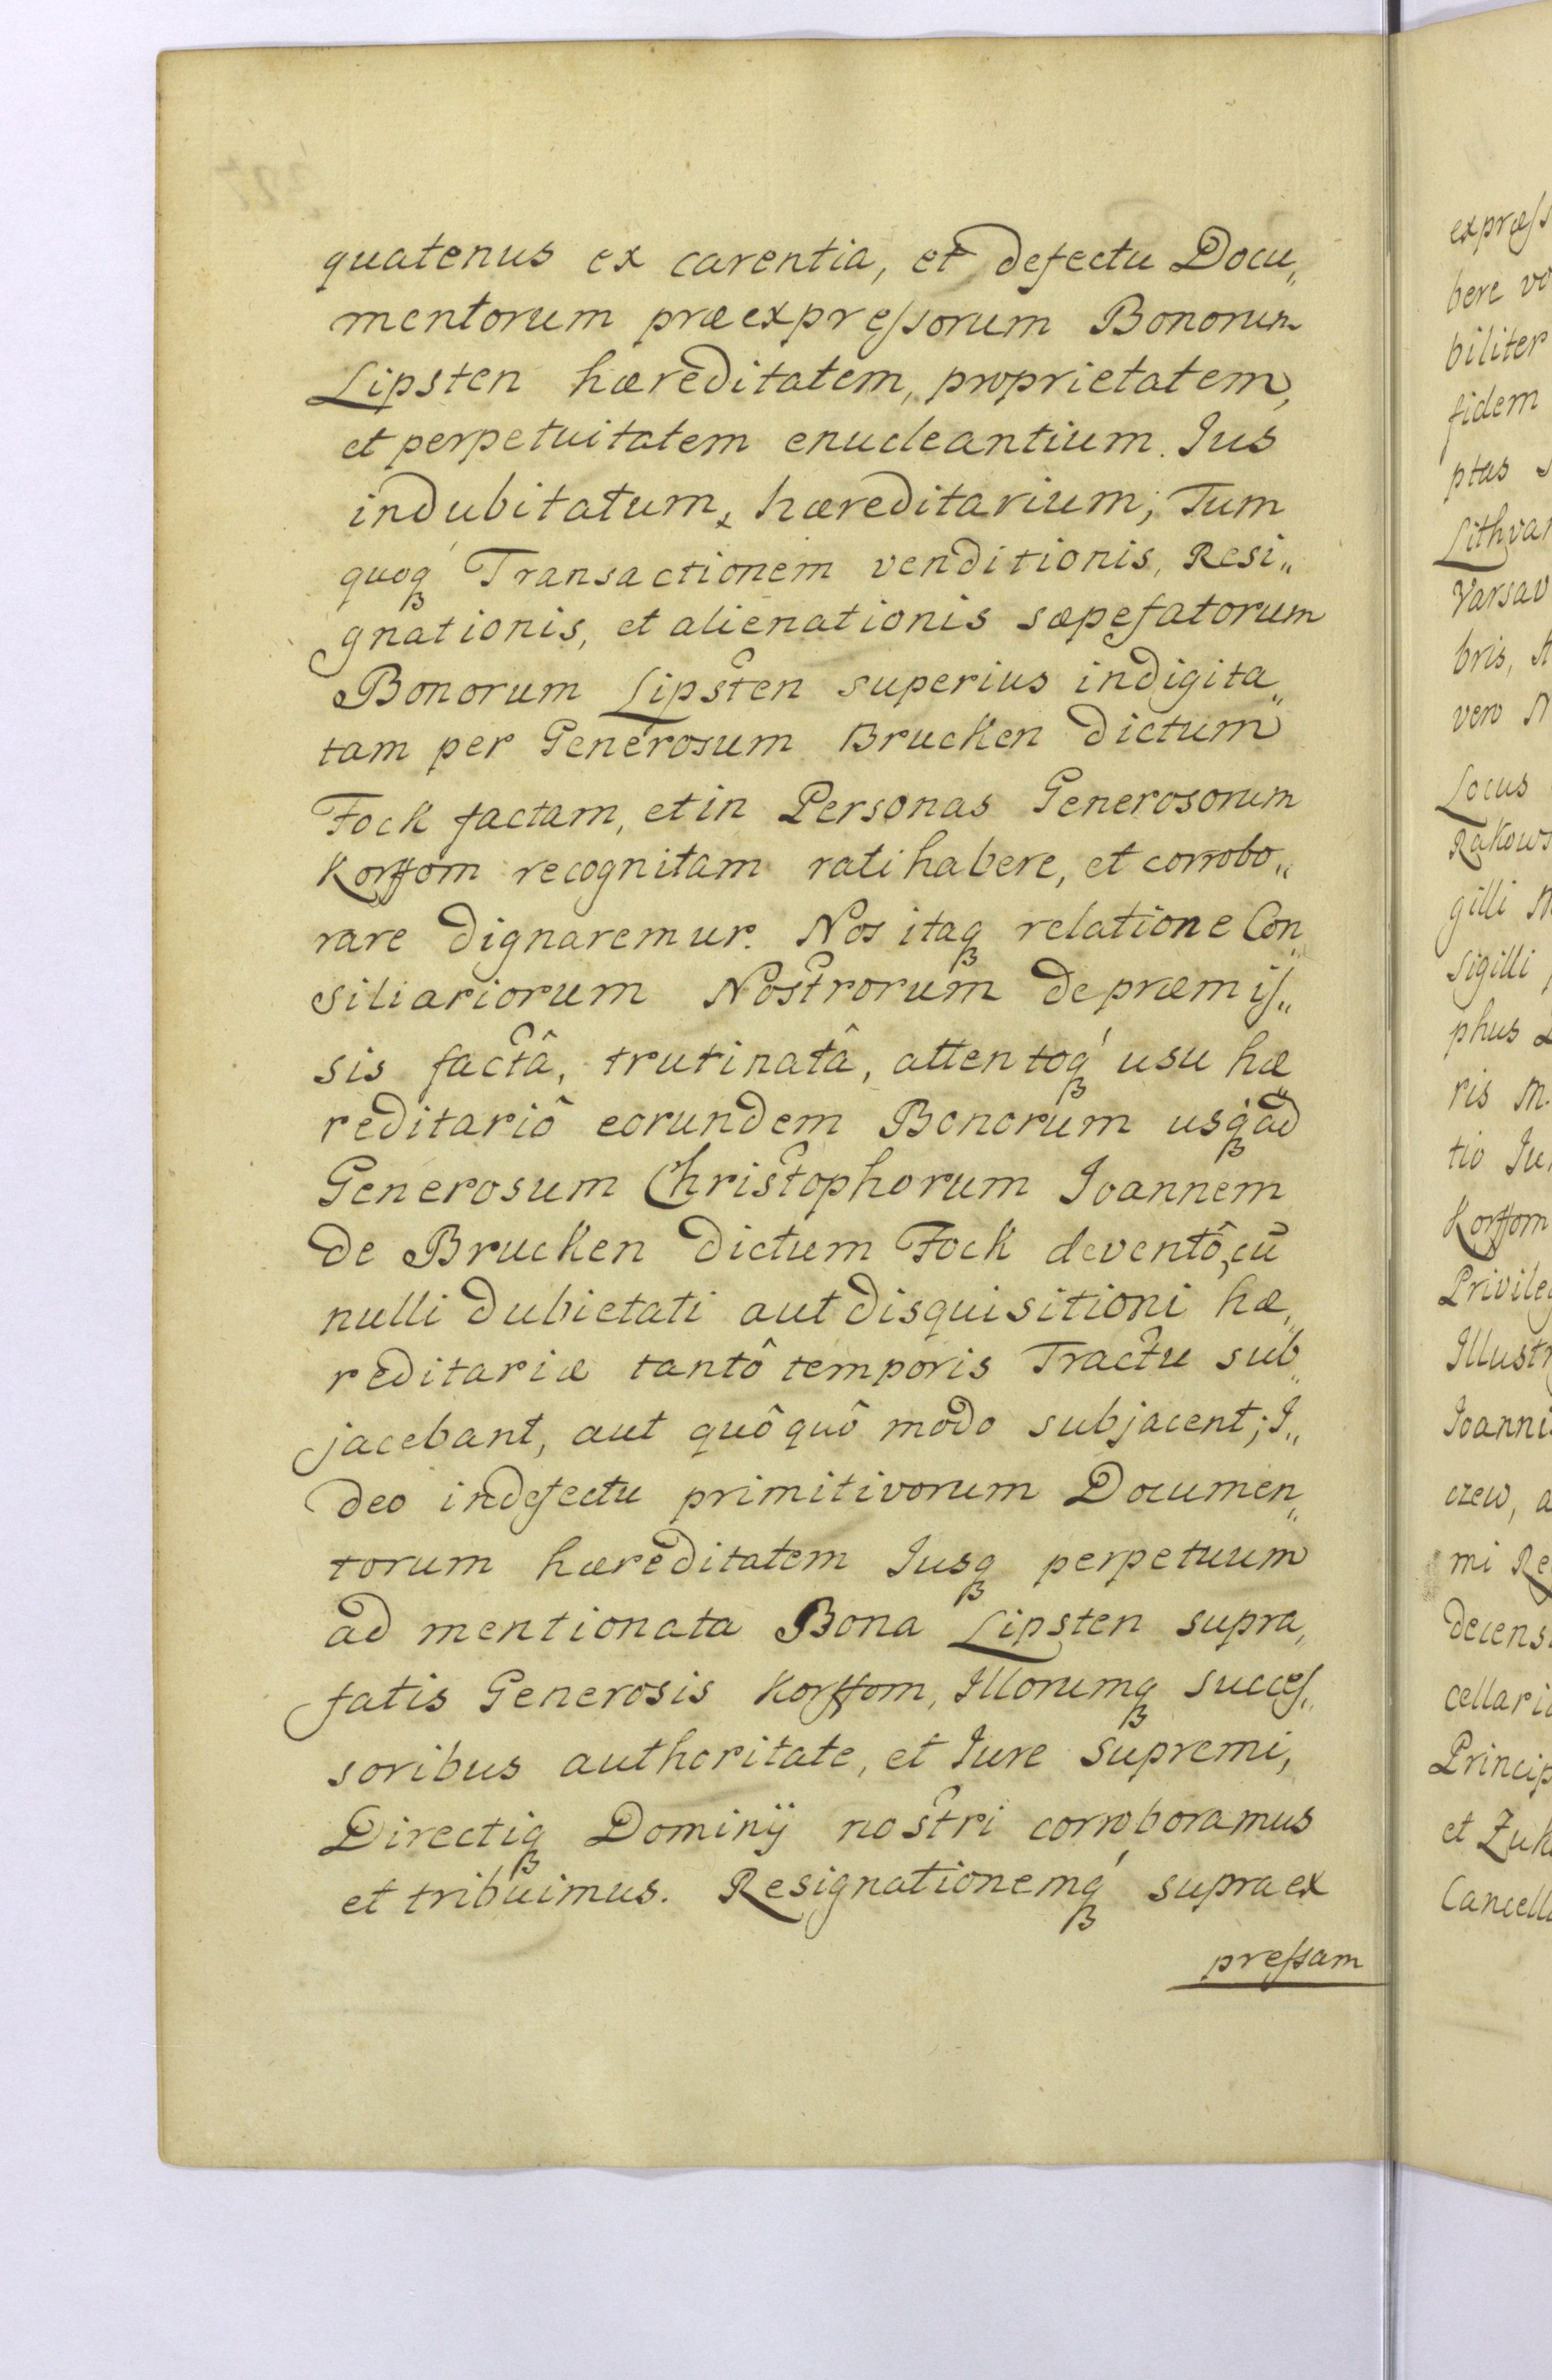 quatenus ex carentia, et defectu Docu„
mentorum præexpreſsorum Bonorum
Lipsten hæreditatem, proprietatem,
et perpetuitatem enucleantium. Jus
indubitatum, hæreditarium; Tum
quoqꝫ Transactionem venditionis, Resi„
gnationis, et alienationis sæpefatorum
Bonorum Lipsten superius indigita„
tam per Generosum Brucken dictum
Fock factam, et in Personas Generosorum
Korffom recognitam ratihabere, et corrobo„
rare dignaremur. Nos itaqꝫ relatione Con„
siliariorum Nostrorum de præmiſ„
sis factâ, trutinatâ, attentoqꝫ usu hæ„
reditariô eorundem Bonorum usqꝫ ad
Generosum Christophorum Joannem
de Brucken dictum Fock deventô, cū
nulli dubietati aut disquisitioni hæ„
reditariæ tantô temporis Tractu sub„
jacebant, aut quô quô modo subjacent; I„
deo in defectu primitivorum Documen„
torum hæreditatem Jusqꝫ perpetuum
ad mentionata Bona Lipsten supra„
fatis Generosis Korffom, Illorumqꝫ succeſ„
soribus authoritate, et Jure Supremi,
Directiqꝫ Dominÿ nostri corroboramus
et tribuimus. Resignationemqꝫ supra ex
preſsam
expræſs
bere vo
biliter
fidem
ptas s
Lithvan
Varsav
bris, A
vero N
Locus
Rakows
gilli M
sigilli p
phus
ris M.
tio Ju
Korffom
Privileg
Illustr
Joannis
czew, a
mi Re
decens
cellari
Princip
et Zuk
Cancella